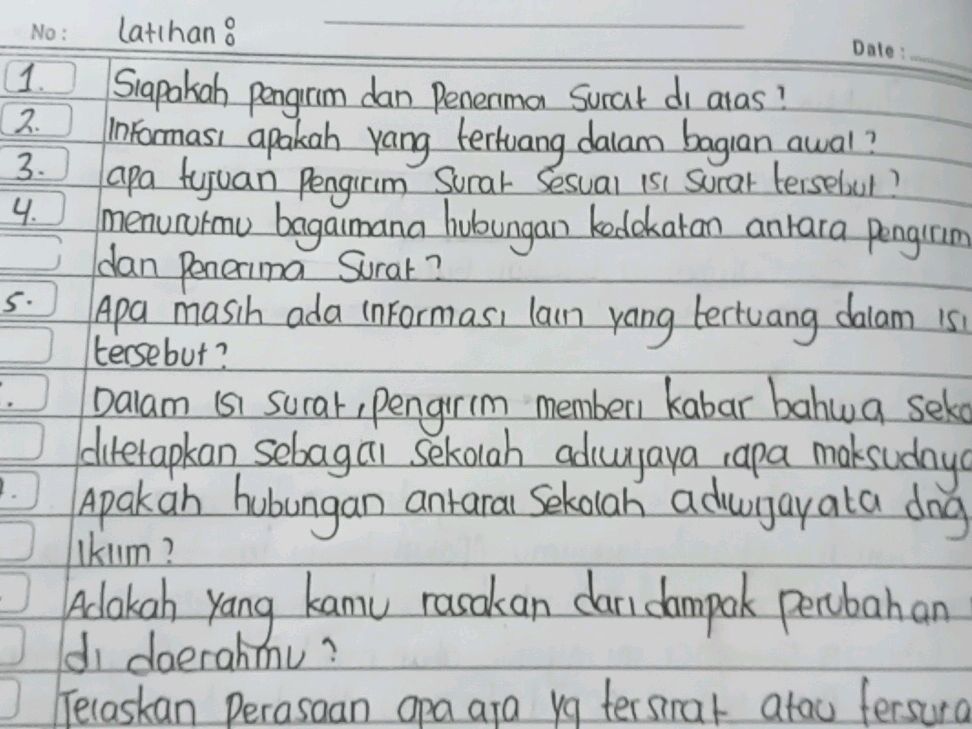 No: Latihan:
Date:
1. Siapakah pengirim dan Penerima Surat di atas?
2. Informasi apakah yang tertuang dalam bagian awal?
3. apa tujuan Pengirim Surat Sesuai isi Surat tersebut?
4. menurutmu bagaimana hubungan kedekatan antara pengirim
dan Penerima Surat?
5. Apa masih ada informasi lain yang tertuang dalam isi
tersebut?
Dalam isi surat, pengirim memberi kabar bahwa
ditetapkan sebagai sekolah adiwijaya, apa
Apakah hubungan antara Sekolah adiwijayata dng
iklim?
Adakah yang kamu rasakan dari dampak perubahan
di daerahmu?
Jelaskan Perasaan apa aja yg tersirat atau